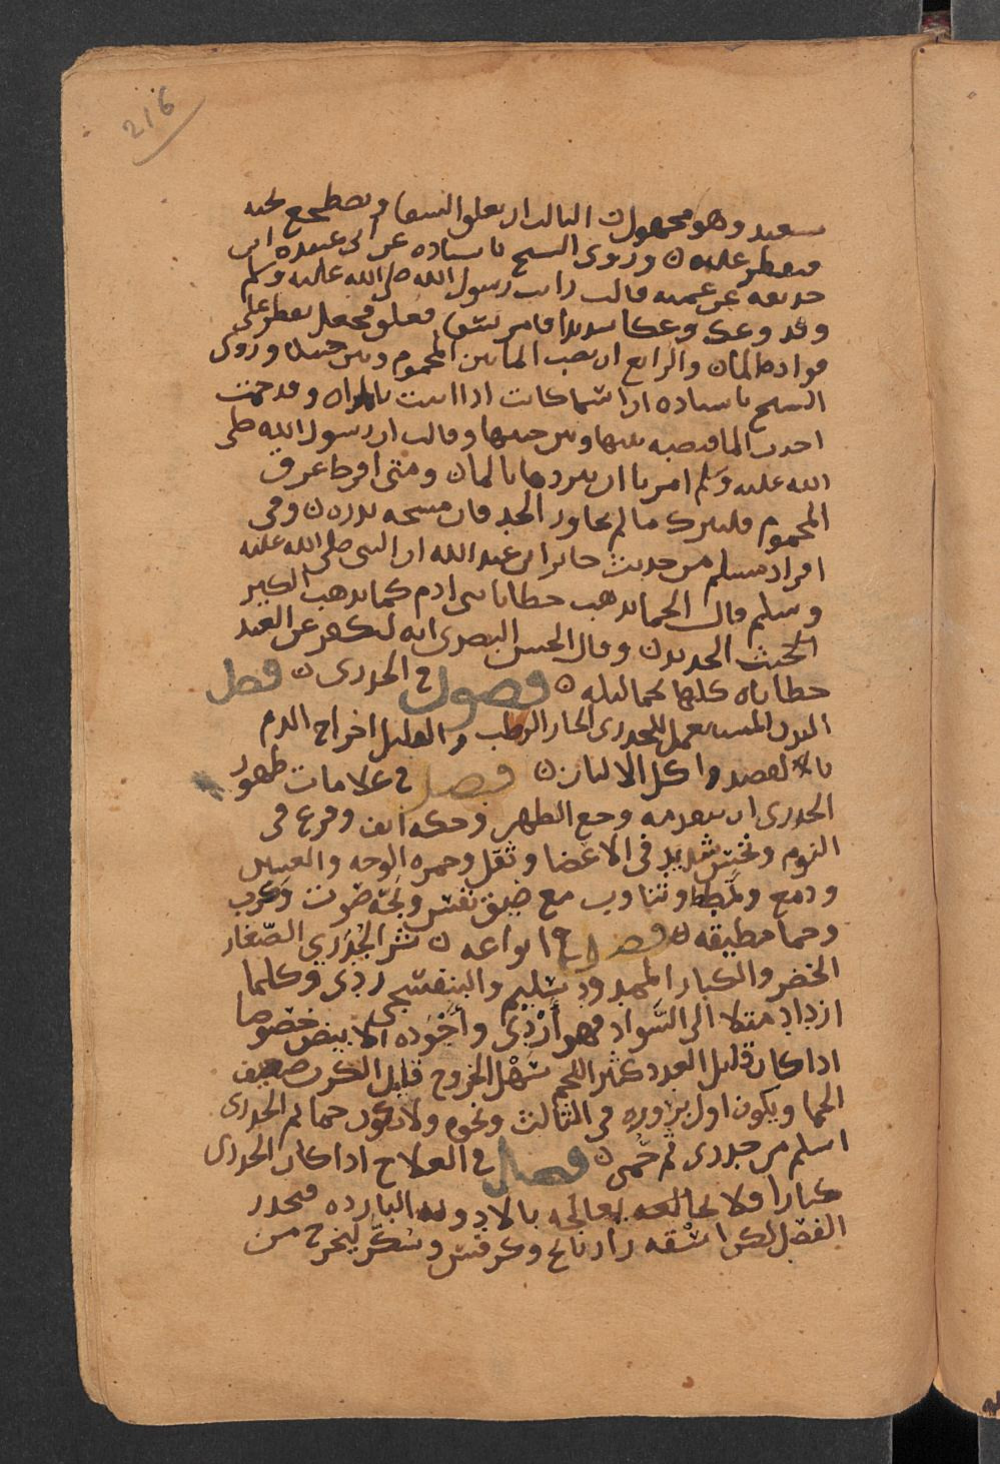 216
سعيد وهو مجهول ن الثالث ان يعلق السقا ويضطجع تحته
فيقطر عليه ن وروى الشيخ باسناده عن ابي عبيدة ابن
حذيفة عن عمته قالت رايت رسول الله صلى الله عليه وسلم
وقد وعك وعكا شديدا فامر بسقا فعلق فجعل يقطر على
فواده الماء ن والرابع ان يصب الما بين المحموم وبين جيبه وروى
الشيخ باسناده ان اسما كانت اذا اتيت بالمراه وقد حمت
اخذت الما فتصبه بينها وبين جيبها وقالت ان رسول الله صلى
الله عليه وسلم امرنا ان نبردها بالما ن ومتى افرط عرق
المحموم فليترك ما لم يجاوز الحد فان مسحه يدره ن وفي
افراد مسلم من حديث جابر ابن عبد الله ان النبي صلى الله عليه
وسلم قال الحما تذهب خطايا بني ادم كما يذهب الكير
الخبث الحديد ن وقال الحسن البصري انه ليكفر عن العبد
خطاياه كلها بحما ليله ن فصول في الجدري ن فصل
البدن المستعمل للجدري الحار الرطب والقليل اخراج الدم
بالفصد واكل الالبان ن فصل في علامات ظهور
الجدري ان يتقدمه وجع الظهر وحكه انف وفزع في
النوم ونخس شديد في الاعضا وثقل وحمره الوجه والعينين
ودمع وتمطط وتثاوب مع ضيق نفس وبحة صوت وكرب
وحما مطبقه ن فصل في انواعه ن شر الجدري الصغار
الخضر والكبار الممدود سليم والبنفسجي ردى وكلما
ازداد ميلا الى السواد فهو اردى واجوده الابيض خصوصا
اذا كان قليل العدد كثير اللحم سهل الخروج قليل الكرب ضعيف
الحما ويكون اول بزوره في الثالث ونحوه ولان يكون حما ثم الجدري
اسلم من جدري ثم حمى ن فصل في العلاج اذا كان الجدري
كبارا فلا تعالجه بالادويه البارده فيخدر
الفضل لكن اسقه رازيانج وكرفس وسكر ليخرج من